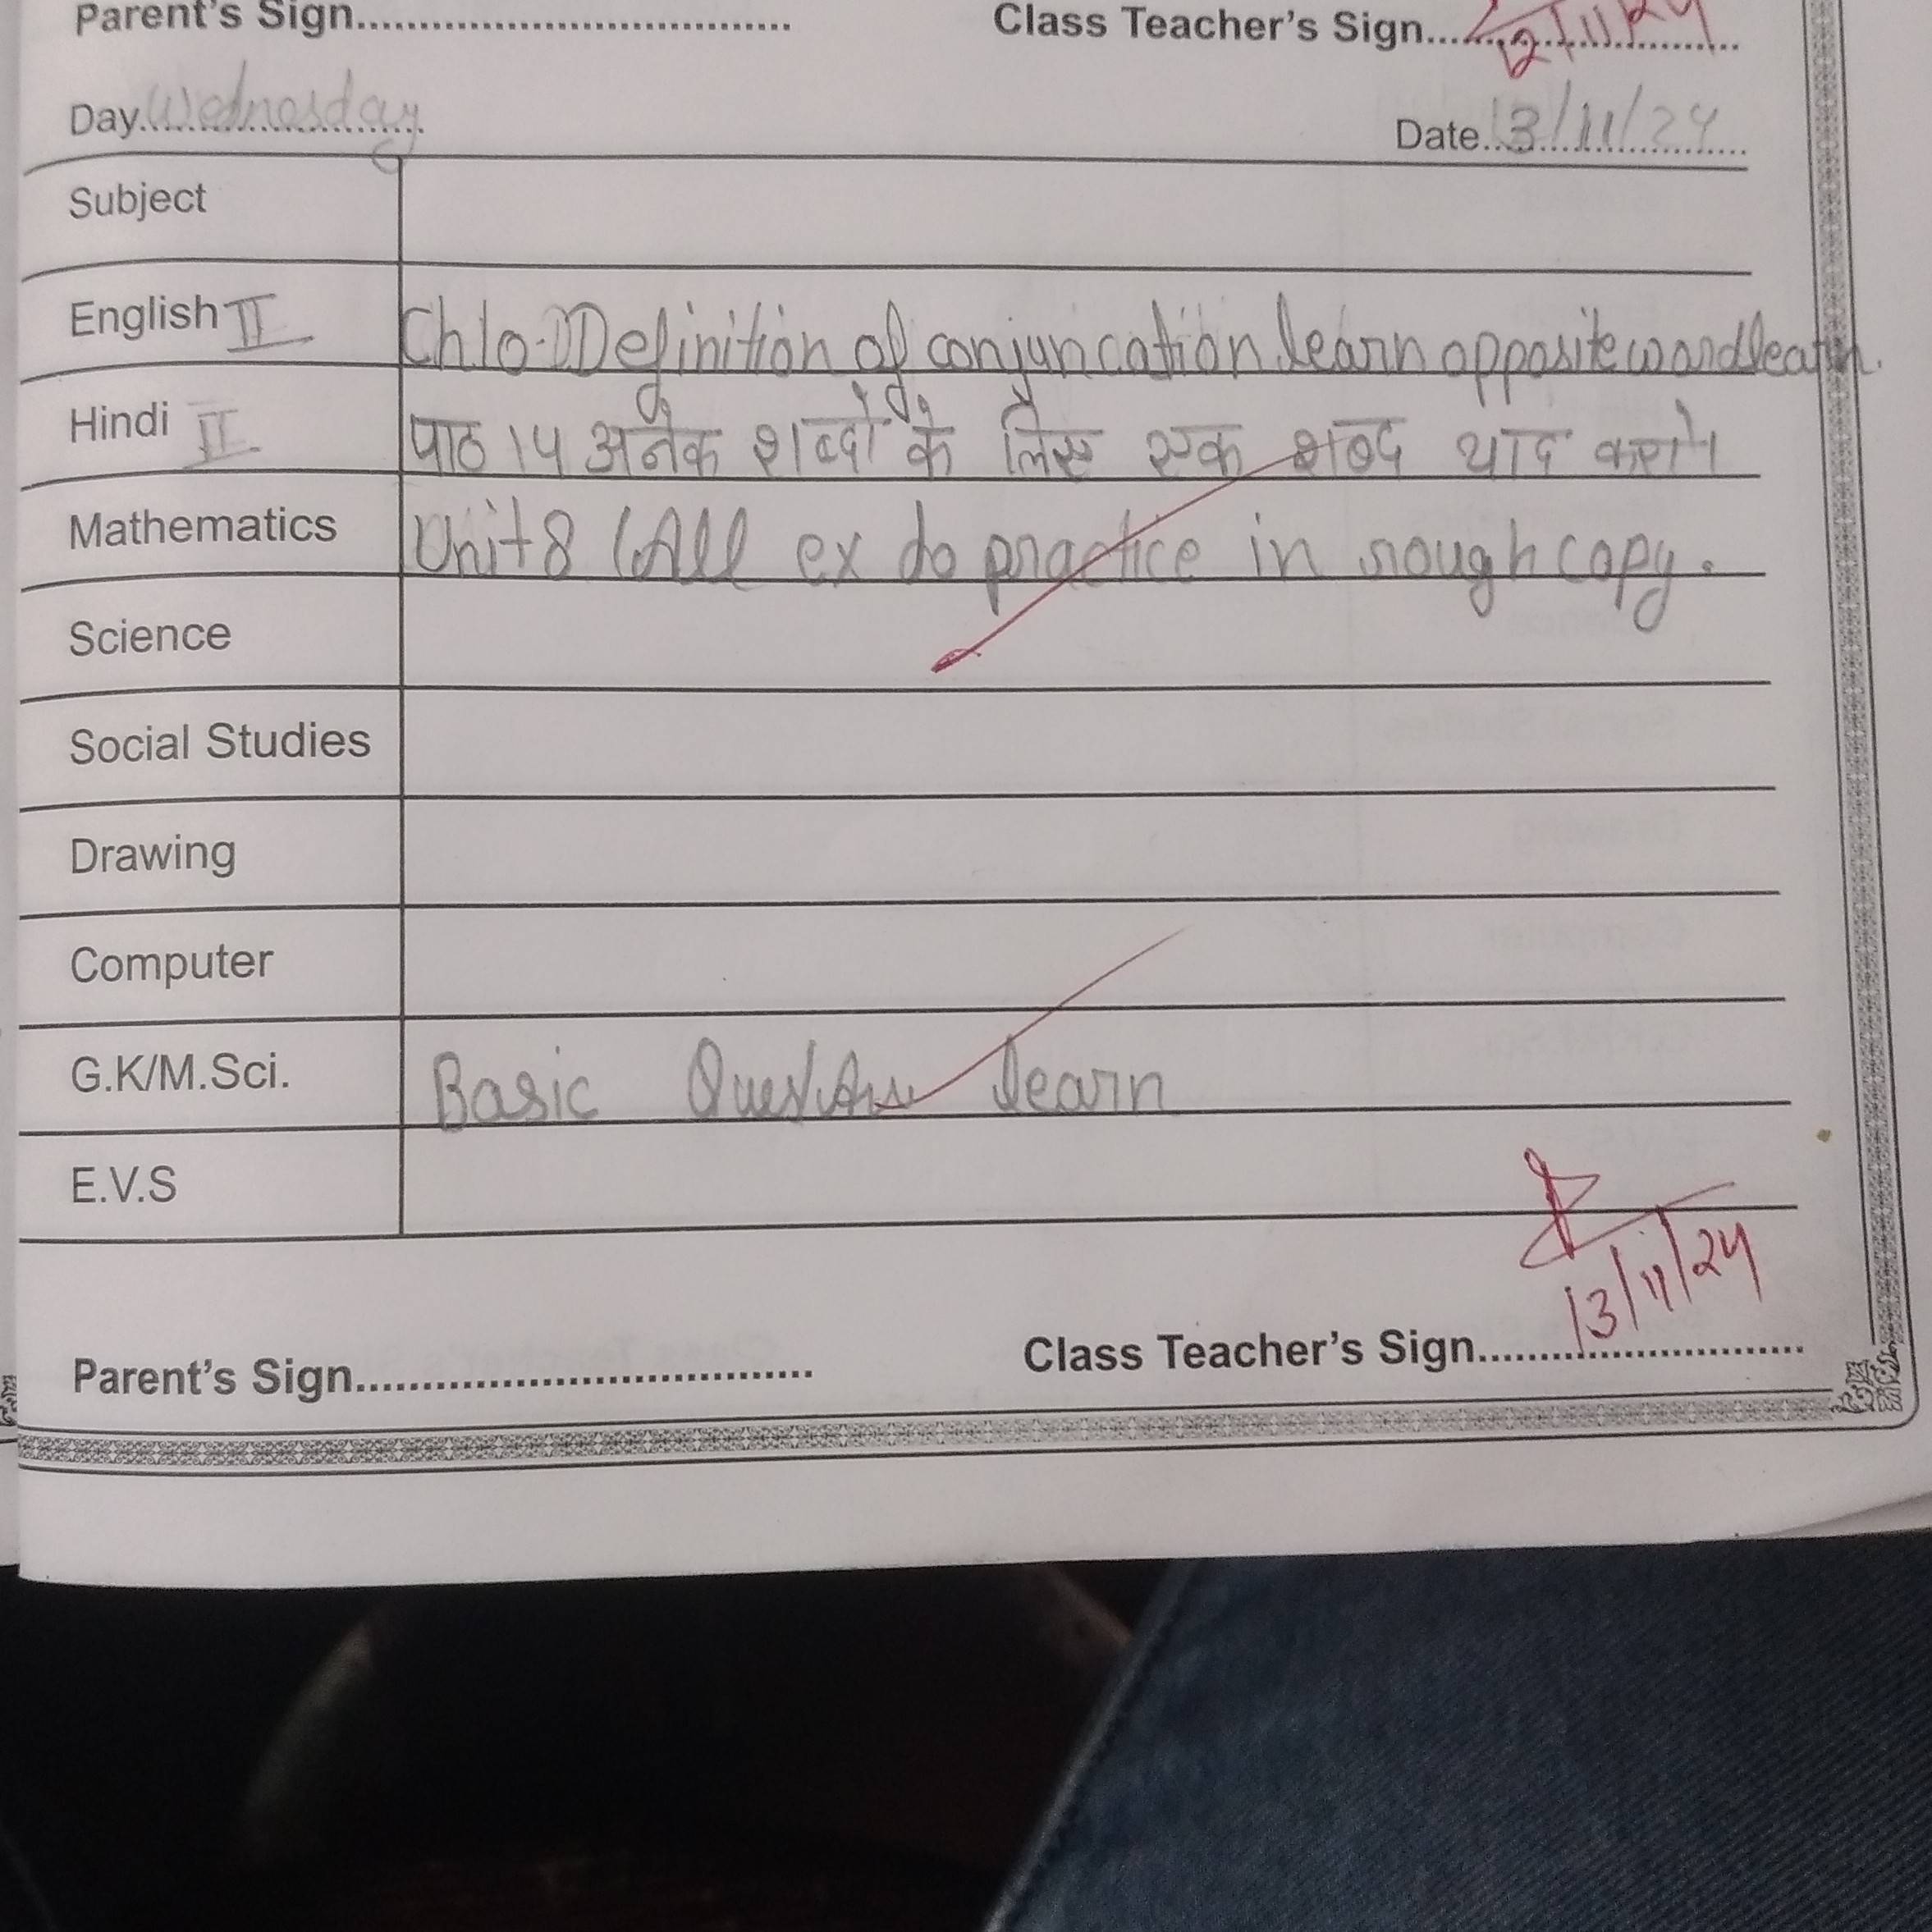 Parent's Sign.................................... Class Teacher's Sign............................ 12/11/24
Day Wednesday Date 13/11/24
Subject
English II Ch10. Definition of conjuncation learn opposite word learn.
Hindi II पाठ 14 अनेक शब्दों के लिए एक शब्द याद करो।
Mathematics Unit 8 (All ex do practice in rough copy.
Science
Social Studies
Drawing
Computer
G.K/M.Sci. Basic Ques/Ans learn
E.V.S
13/11/24
Parent's Sign.................................... Class Teacher's Sign............................